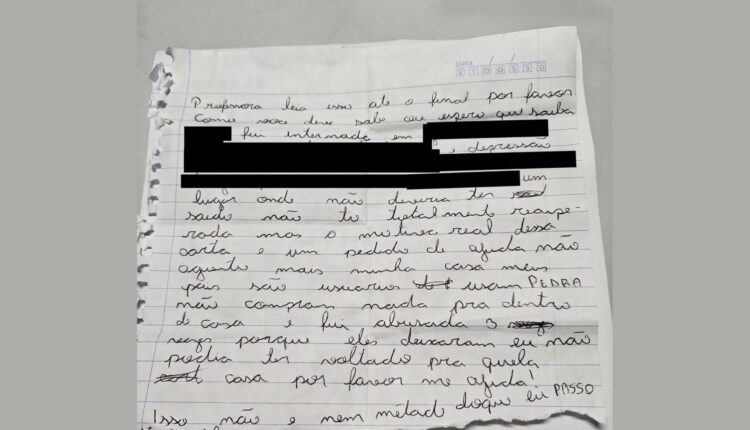 Data / /
S T Q Q S S D
Professora leia isso até o final por favor
Como voce deve sabe ou espero que saiba
fui internada em
e depressão
um
lugar onde não deveria ter
saido não to totalmente recupe-
rada mas o motivo real dessa
carta e um pedido de ajuda não
aguento mais minha casa meus
pais são usuarios usam PEDRA
não compram nada pra dentro
de casa e fui abusada 3
vezes porque eles deixaram eu não
podia ter voltado pra quela
casa por favor me ajuda!
Isso não e nem métade doque eu PASSO